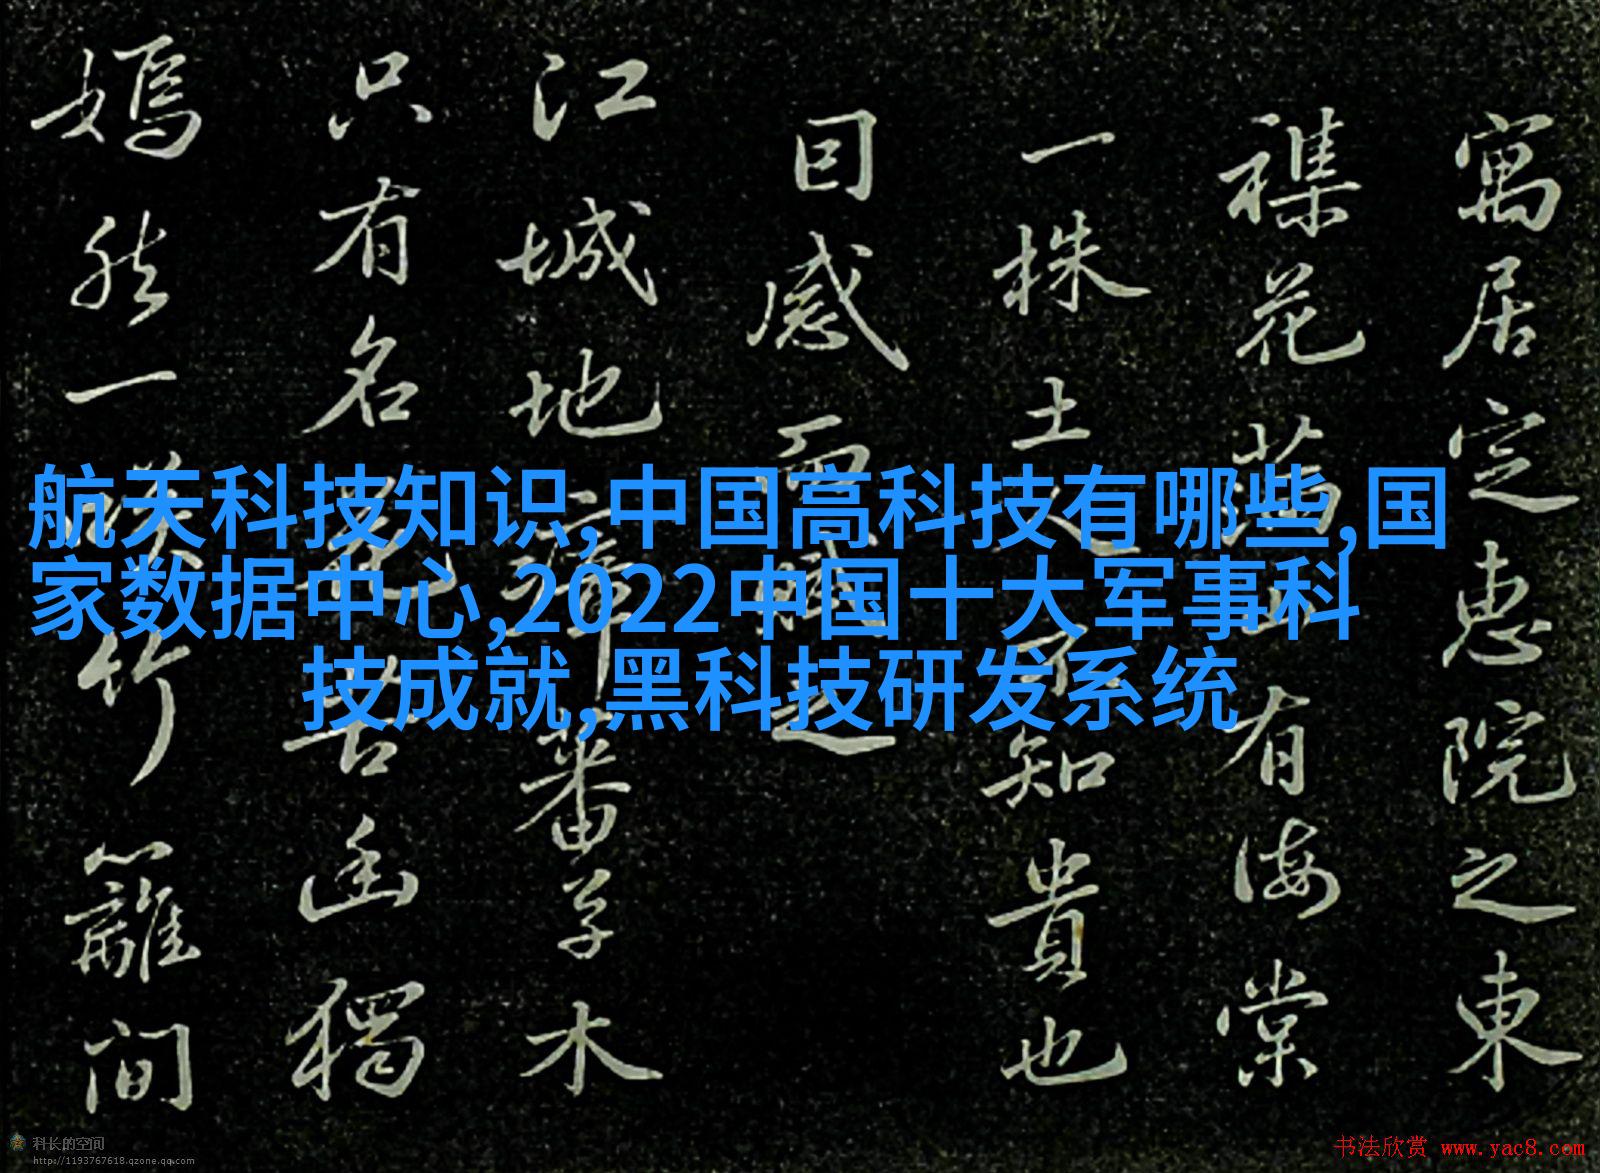 寓居定惠院之東
襍花滿山有海棠
一株土人不知貴也
囙感而賦之
江城地瘴蕃草木
只有名花苦幽獨
嫣然一笑竹籬間
航天科技知识,中国高科技有哪些,国
家数据中心,2022中国十大军事科
技成就,黑科技研发系统
科长的空间
http://1193767618.qzone.qq.com
书法欣赏 www.yac8.com